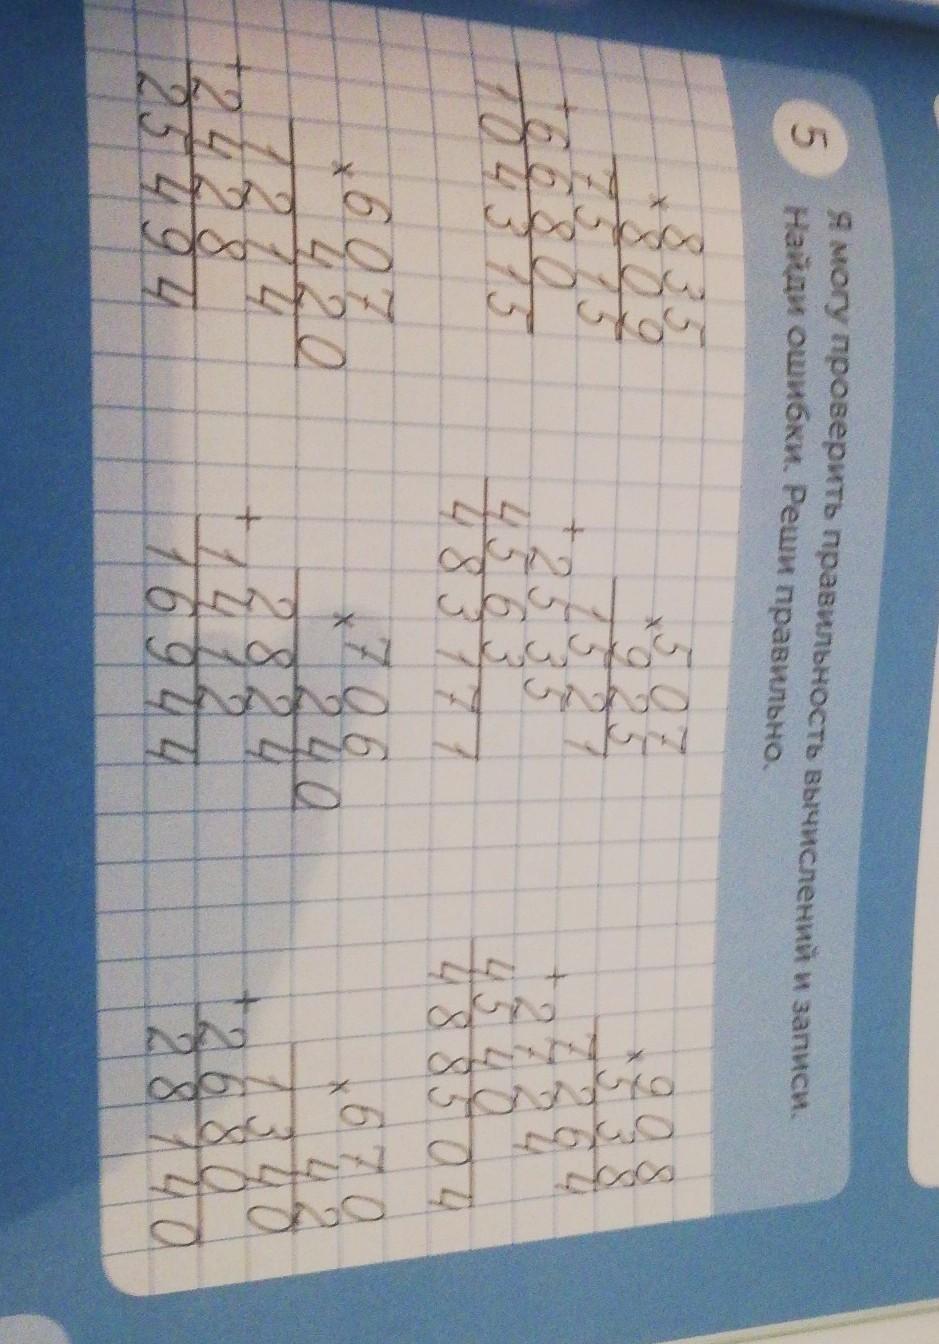 5 Я могу проверить правильность вычислений и записи.
Найди ошибки. Реши правильно.
×835
809
7515
+6680
104315
×507
925
1521
+2535
4563
483171
×908
538
7264
+2724
4540
488504
×607
420
1214
+2428
25494
×706
240
2824
+1412
16944
×670
42
1340
+2680
28140